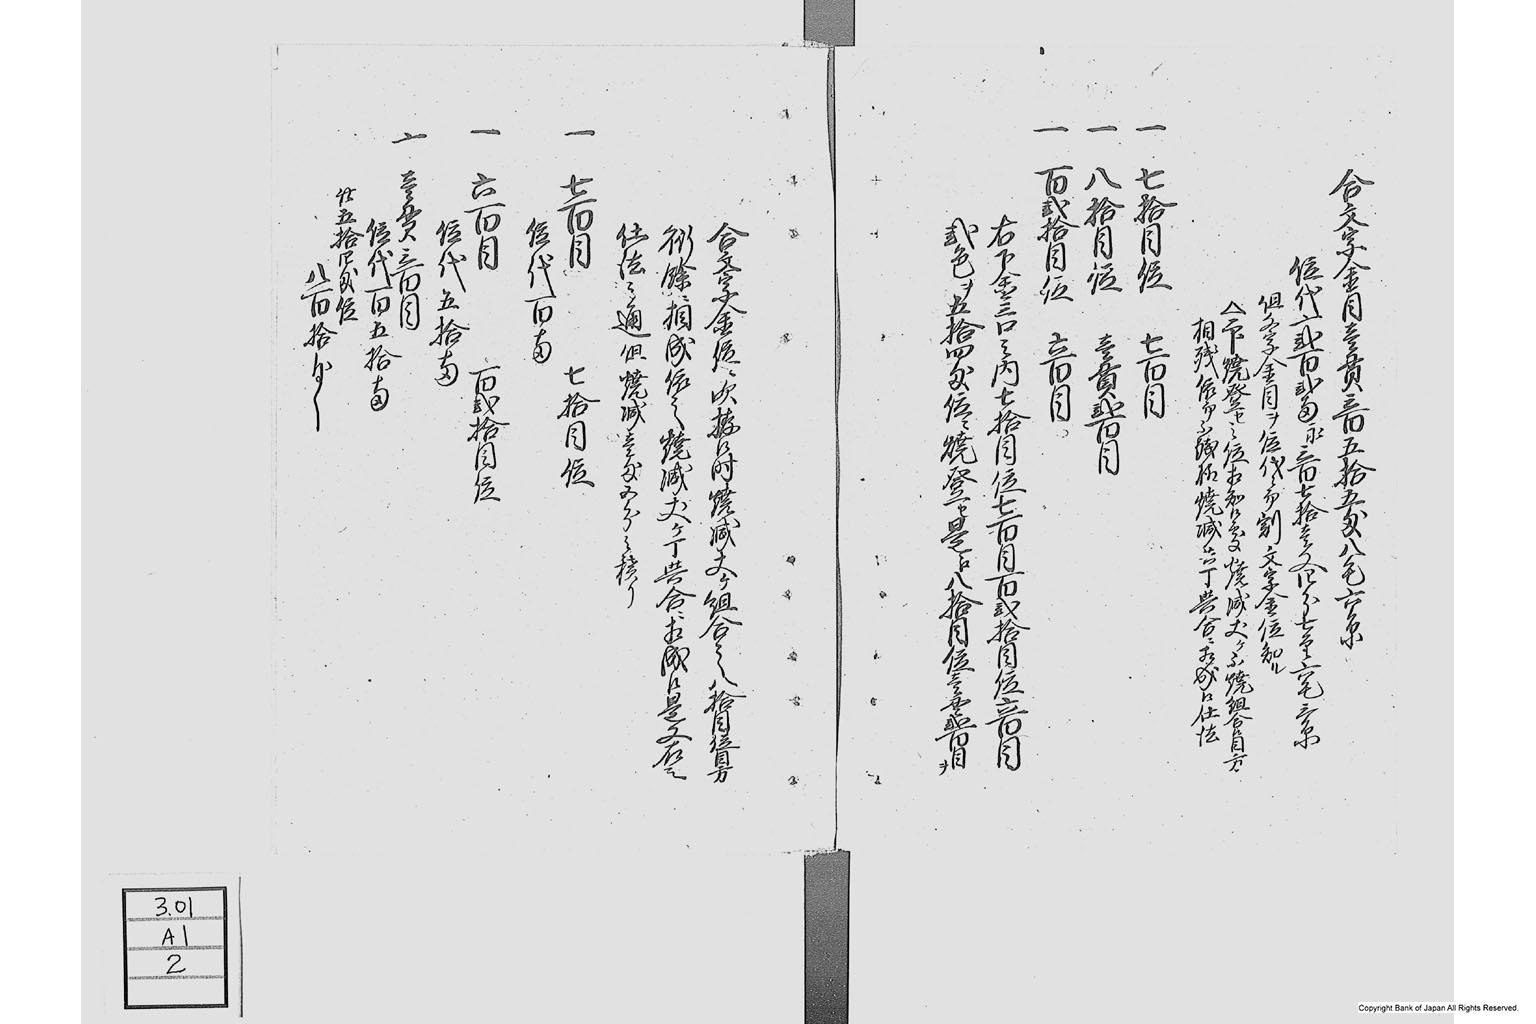 合文字金目壱貫三百五拾五匁八毛六糸
位代弐百弐両永三百七拾壱文四分七厘六毛三糸
但文字金目ヲ位代ニ而割文字金位知ル
下焼登セ之位相知候 焼減丈ケ 焼組合目方
相残 焼減 丁共合ニ相成候仕法
一 七拾目位 七百目
一 八拾目位 壱貫弐百目
一 百弐拾目位 六百目
右下金三口之内七拾目位七百目百弐拾目位六百目
弐色ヲ五拾四匁位ニ焼登セ是ニ八拾目位壱貫弐百目ヲ
合文字金位ニ吹拵候時焼減丈ケ組合之八拾目位目方
余ニ相成依之焼減丈ケ丁共合ニ相成候是又左之
仕法之通但焼減壱匁五分之積り
一 七百目 七拾目位
位代百両
一 六百目 百弐拾目位
位代五拾両
〆 壱貫三百目
位代百五拾両
此五拾四匁位
八百拾匁
3.01
A1
2
Copyright Bank of Japan All Rights Reserved.